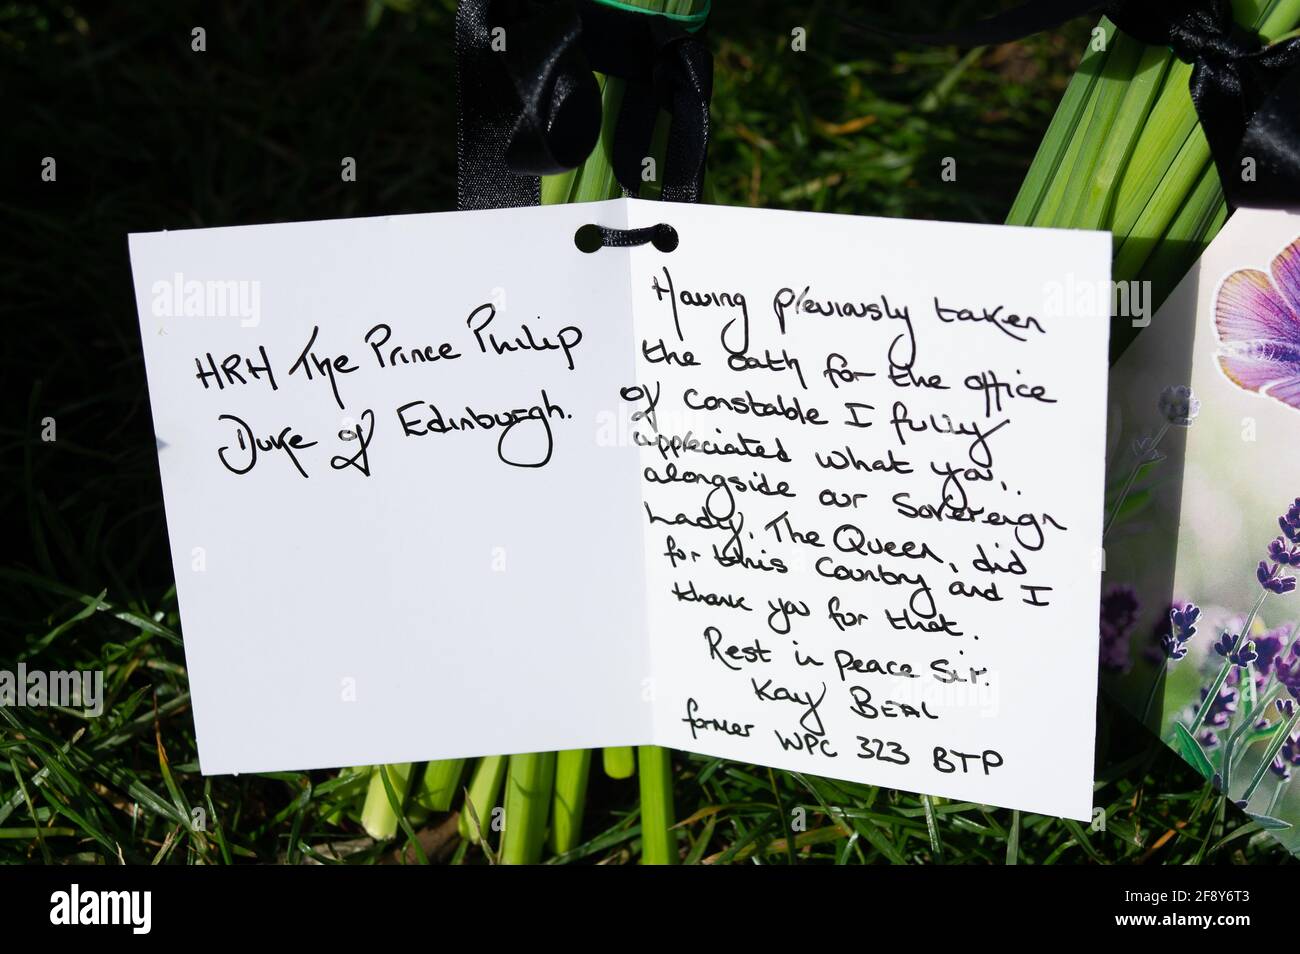 HRH The Prince Philip
Duke of Edinburgh.
Having previously taken
the oath for the office
of constable I fully
appreciated what you,
alongside our Sovereign
Lady, The Queen, did
for this Country and I
thank you for that.
Rest in peace Sir.
Kay BEAL
former WPC 323 BTP
alamy
alamy
Image ID: 2F8Y6T3
www.alamy.com